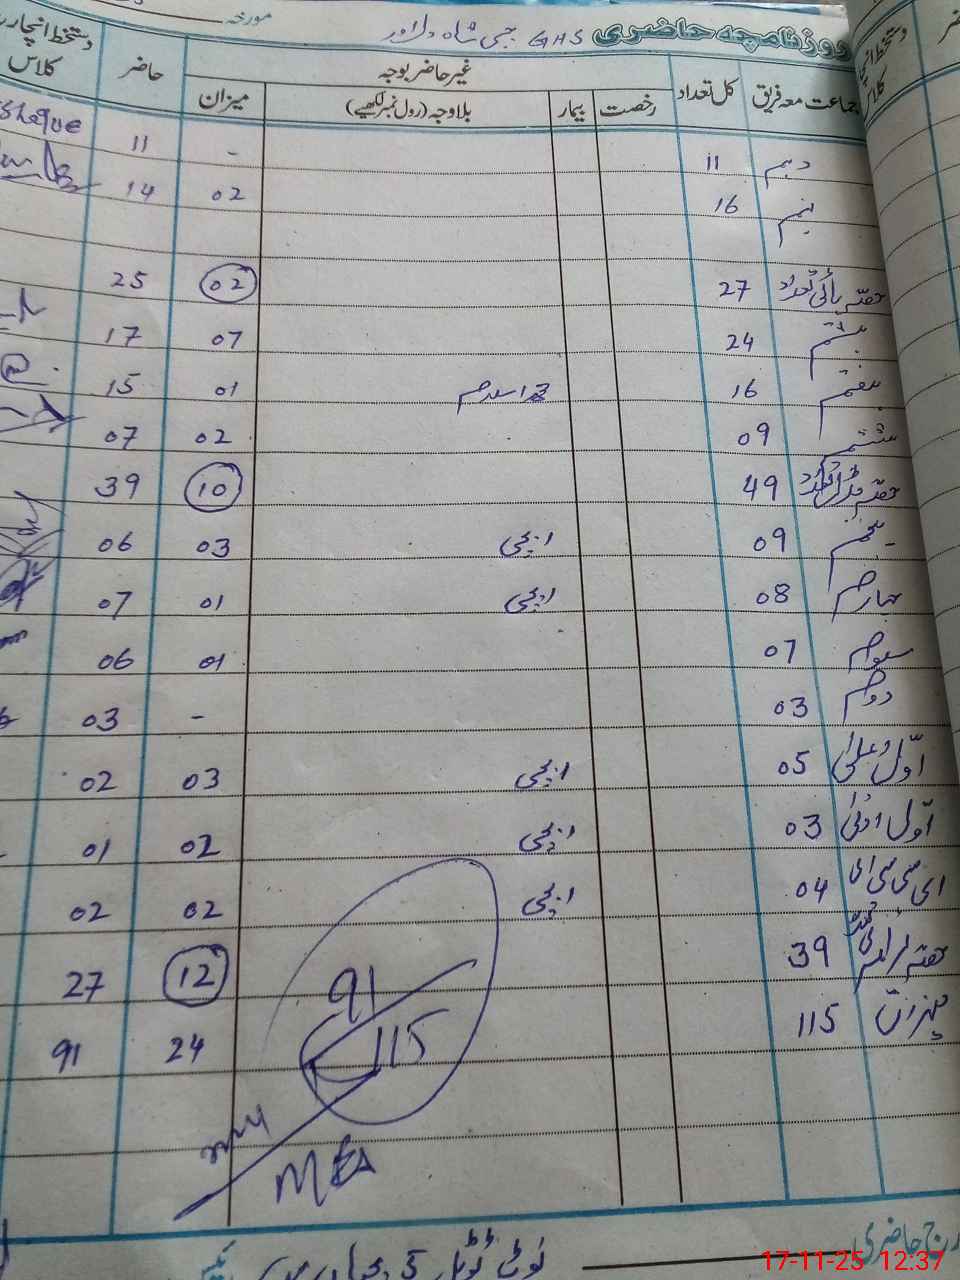 روزنامچہ حاضری GHS جی شاہ دلاور مورخہ
جماعت معہ فریق کل تعداد غیر حاضر بوجہ حاضر دستخط انچارج کلاس
رخصت بیمار بلاوجہ (رول نمبر لکھیے) میزان
دہم 11 - 11
نہم 16 02 14
حصہ ہائی تعداد 27 02 25
ہشتم 24 07 17
ہفتم 16 01 15
ششم 09 02 07
حصہ مڈل تعداد 49 10 39
پنجم 09 03 06
چہارم 08 01 07
سوم 07 01 06
دوم 03 - 03
اوّل اعلیٰ 05 03 02
اوّل ادنیٰ 03 02 01
ای سی سی ای 04 02 02
حصہ پرائمری 39 12 27
میزان 115 24 91
91
115
MEA
درج حاضری
نوٹ ٹوٹل
17-11-25 12:37